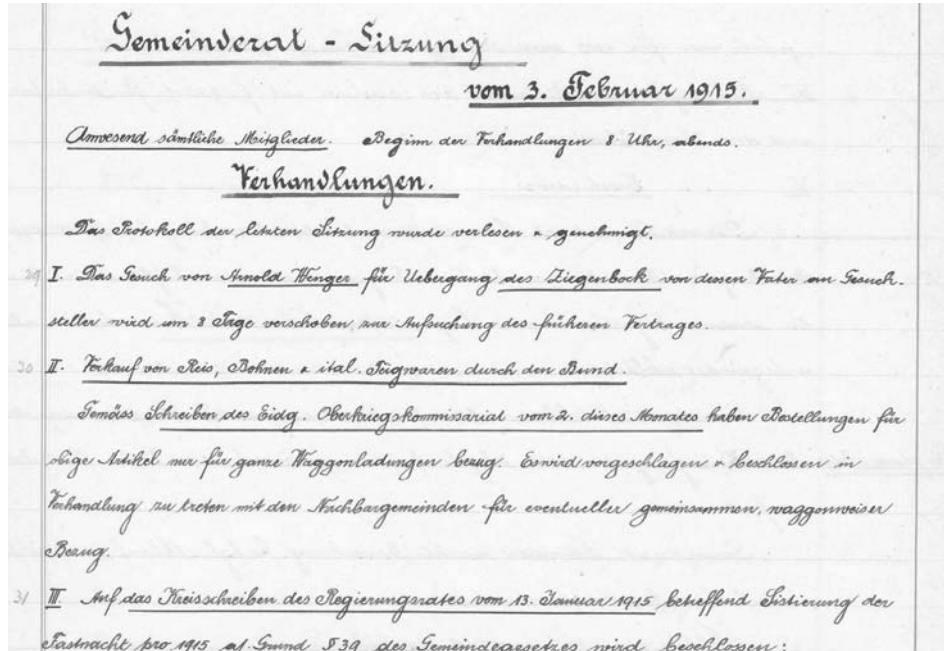 Gemeinderat - Sitzung
vom 3. Februar 1915.
Anwesend sämtliche Mitglieder. Beginn der Verhandlungen 8 Uhr, abends.
Verhandlungen.
Das Protokoll der letzten Sitzung wurde verlesen & genehmigt.
29 I. Das Gesuch von Arnold Wenger für Uebergang des Ziegenbock von dessen Vater an Gesuch-
steller wird um 8 Tage verschoben, zur Aufsuchung des früheren Vertrages.
30 II. Verkauf von Reis, Bohnen & ital. Teigwaren durch den Bund.
Gemäss Schreiben des Eidg. Oberkriegskommissariat vom 2. dieses Monates haben Bestellungen für
obige Artikel nur für ganze Waggonladungen bezug. Es wird vorgeschlagen & beschlossen in
Verhandlung zu treten mit den Nachbargemeinden für eventueller gemeinsammen, waggonweiser
Bezug.
31 III. Auf das Kreisschreiben des Regierungsrates vom 13. Januar 1915 betreffend Sistierung der
Fastnacht pro 1915 af. Grund § 39 des Gemeindegesetzes wird beschlossen: